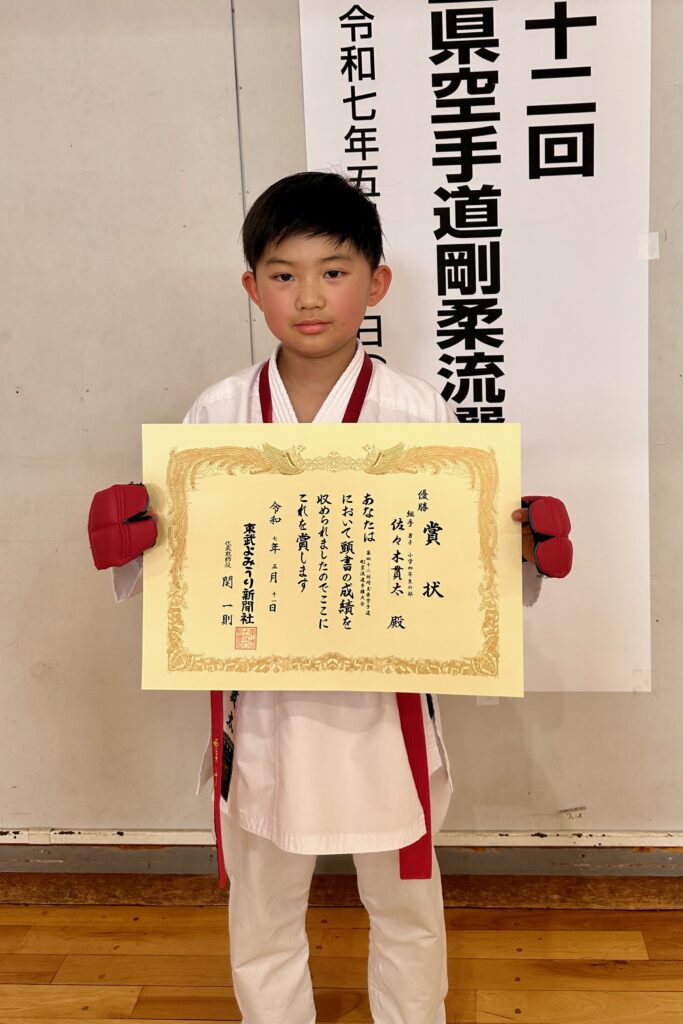 十二回
県空手道剛柔流選
令和七年五
日
賞状
優勝
組手 男子 小学四年生の部
佐々木貫太 殿
あなたは
第四十二回埼玉県空手道
剛柔流選手権大会
において顕書の成績を
収められましたのでここに
これを賞します
令和 七年 五月 十一日
東武よみうり新聞社
代表取締役 関 一則